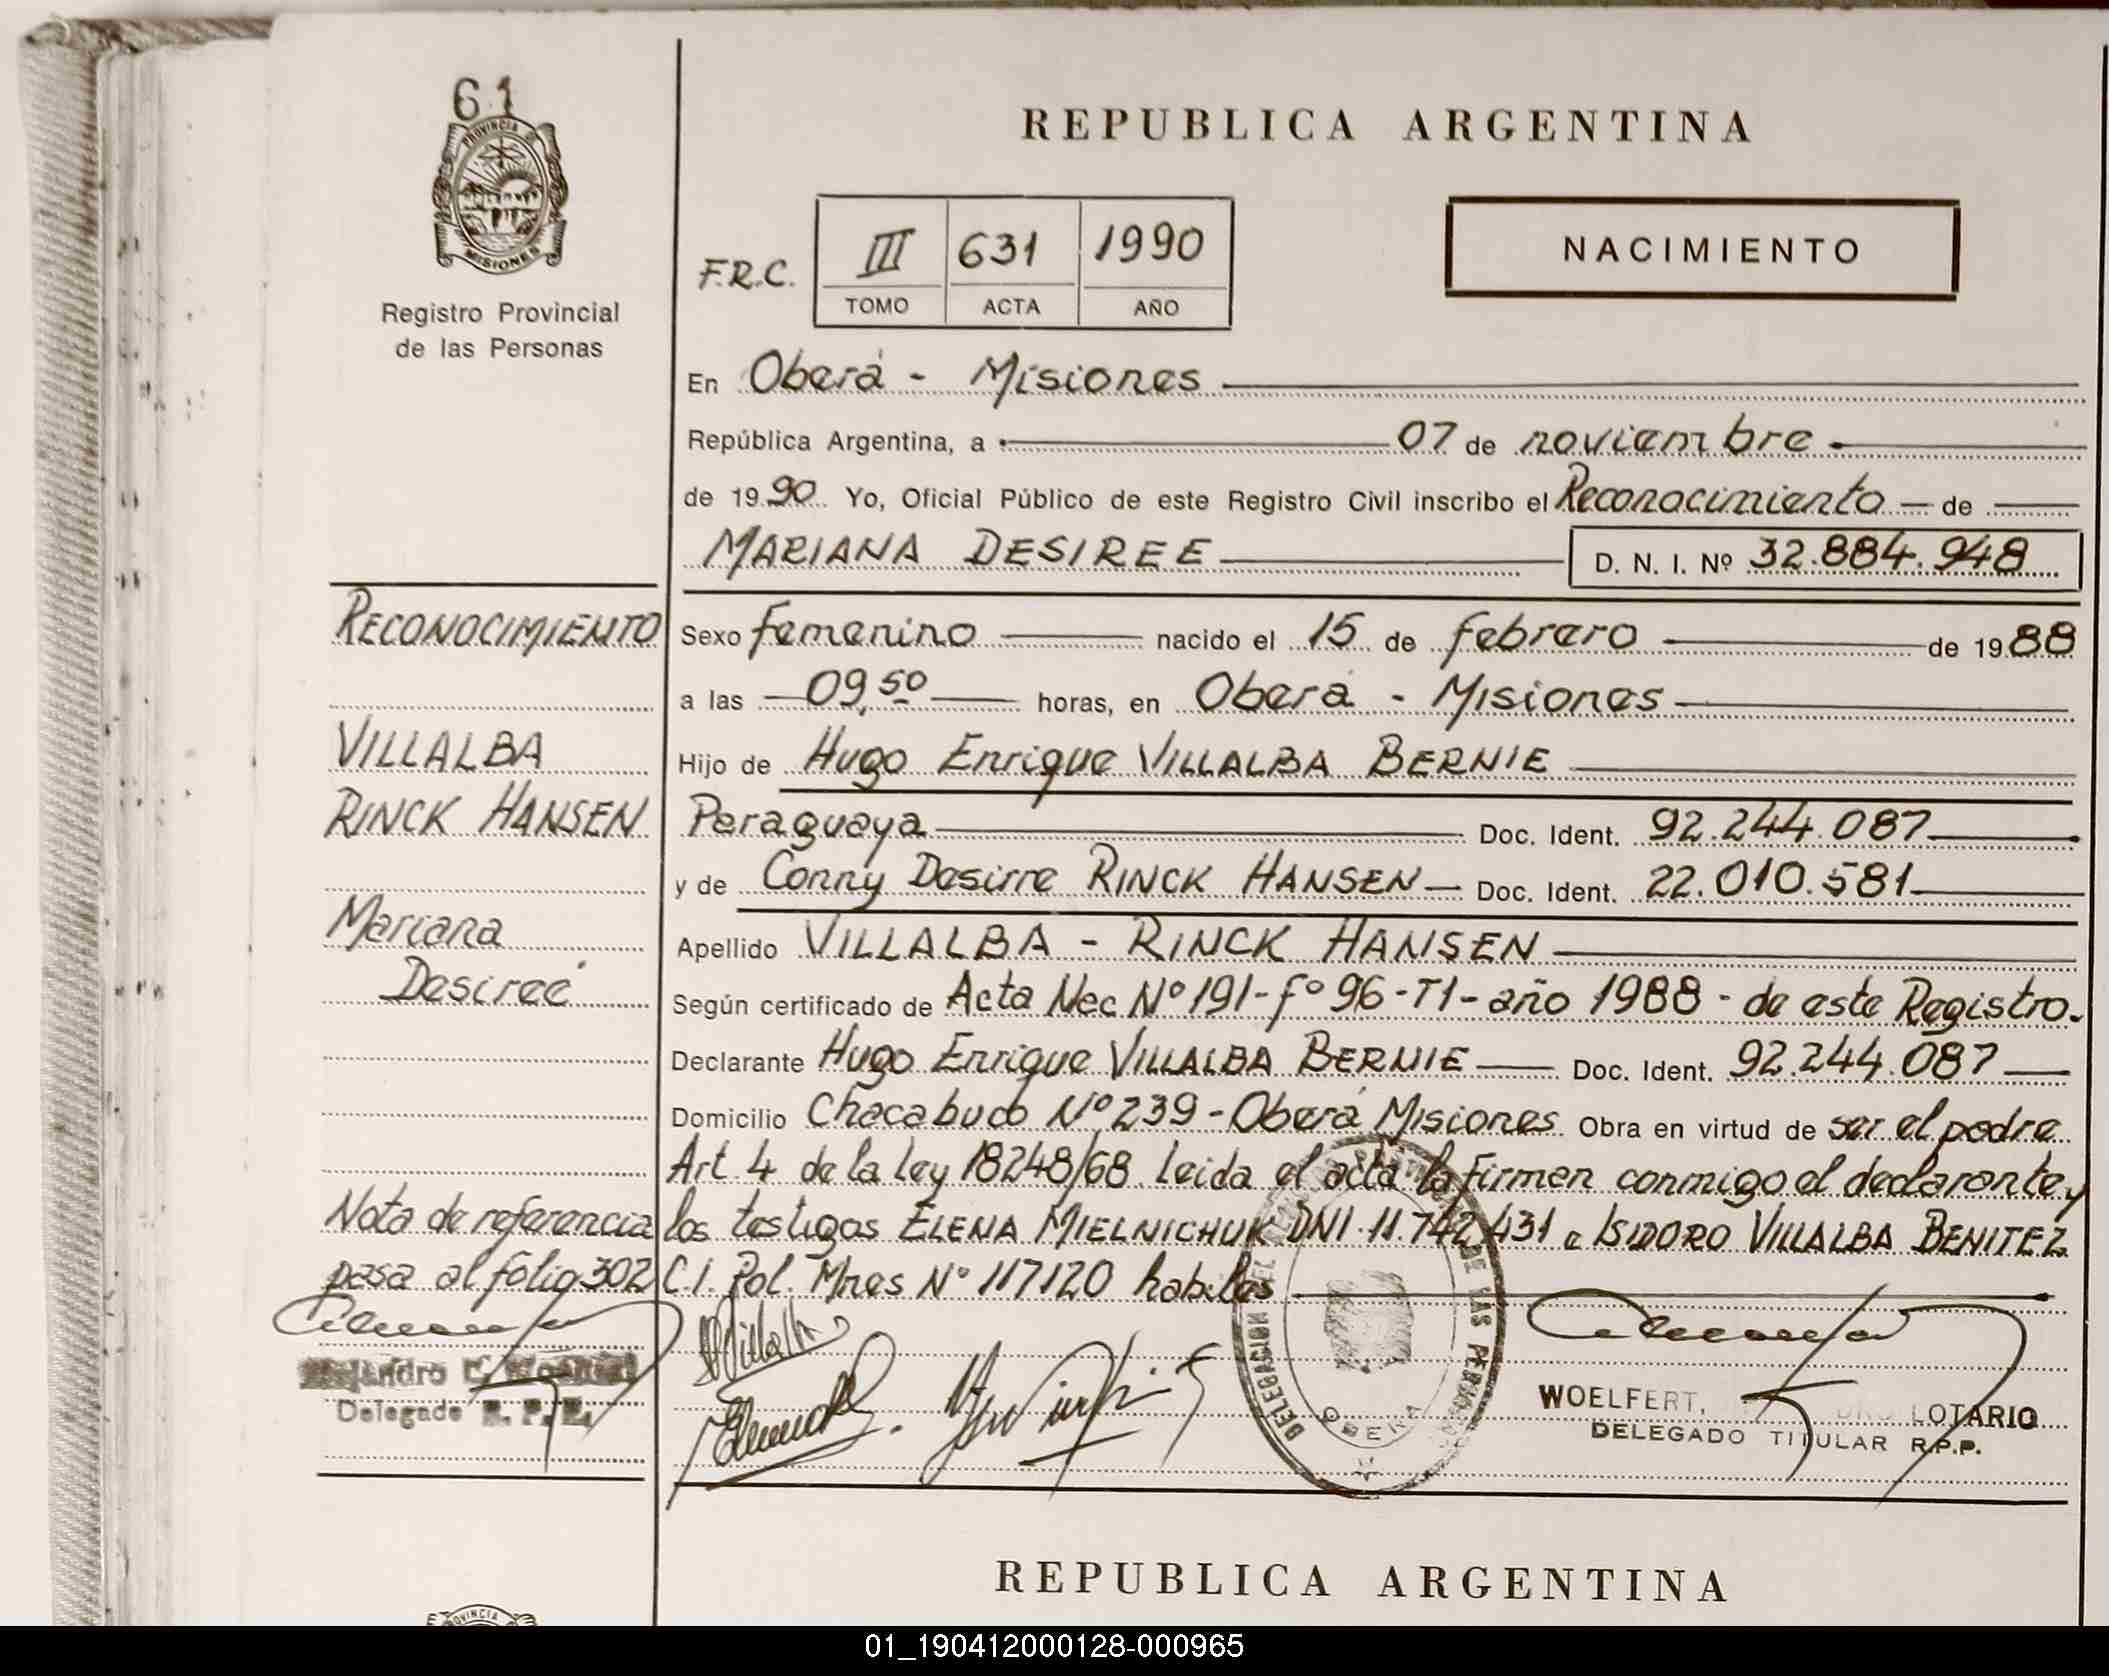 61
PROVINCIA DE
MISIONES
Registro Provincial
de las Personas
REPUBLICA ARGENTINA
F.R.C.
III 631 1990
TOMO ACTA AÑO
NACIMIENTO
En Oberá - Misiones
República Argentina, a 07 de noviembre
de 1990 Yo, Oficial Público de este Registro Civil inscribo el Reconocimiento de
MARIANA DESIREE D. N. I. Nº 32.884.948
RECONOCIMIENTO
VILLALBA
RINCK HANSEN
Mariana
Desireé
Nota de referencia
pasa al folio 302
Delegado R. P. P.
Sexo femenino nacido el 15 de febrero de 1988
a las 09,50 horas, en Oberá - Misiones
Hijo de Hugo Enrique VILLALBA BERNIE
Paraguaya Doc. Ident. 92.244.087
y de Conny Desirre RINCK HANSEN Doc. Ident. 22.010.581
Apellido VILLALBA - RINCK HANSEN
Según certificado de Acta Nac Nº 191 - fº 96 - T1 - año 1988 - de este Registro.
Declarante Hugo Enrique VILLALBA BERNIE Doc. Ident. 92.244.087
Domicilio Chacabuco Nº 239 - Oberá Misiones Obra en virtud de ser el padre
Art. 4 de la ley 18248/68 leida el acta la firman conmigo el declarante y
los testigos ELENA MIELNICHUK DNI 11.742.431 e ISIDORO VILLALBA BENITEZ
C.I. Pol. Mnes Nº 117120 habiles
DELEGACION DEL REGISTRO PROVINCIAL DE LAS PERSONAS
OBERA
WOELFERT, LOTARIO
DELEGADO TITULAR R.P.P.
REPUBLICA ARGENTINA
PROVINCIA
01_190412000128-000965